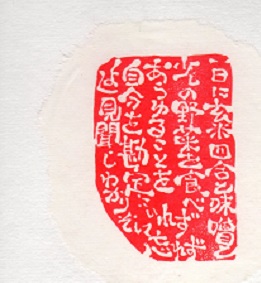 一日に玄米四合と味噌と
少しの野菜を食べ
あらゆることを
自分を勘定にいれず
よく見聞しわかりそして忘れず